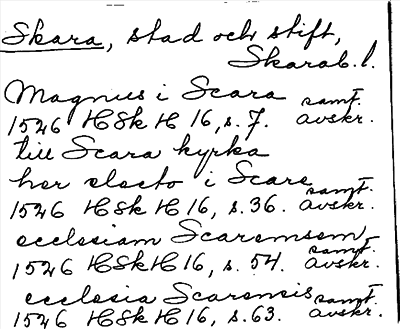 Skara, stad och stift,
Skarab. l.
Magnus i Scara
1526 HSkH 16, s. 7. samt. avskr.
till Scara kyrka
her electo i Scare
1526 HSkH 16, s. 36. samt. avskr.
ecclesiam Scarensem
1526 HSkH 16, s. 54. samt. avskr.
ecclesia Scarensis
1526 HSkH 16, s. 63. samt. avskr.